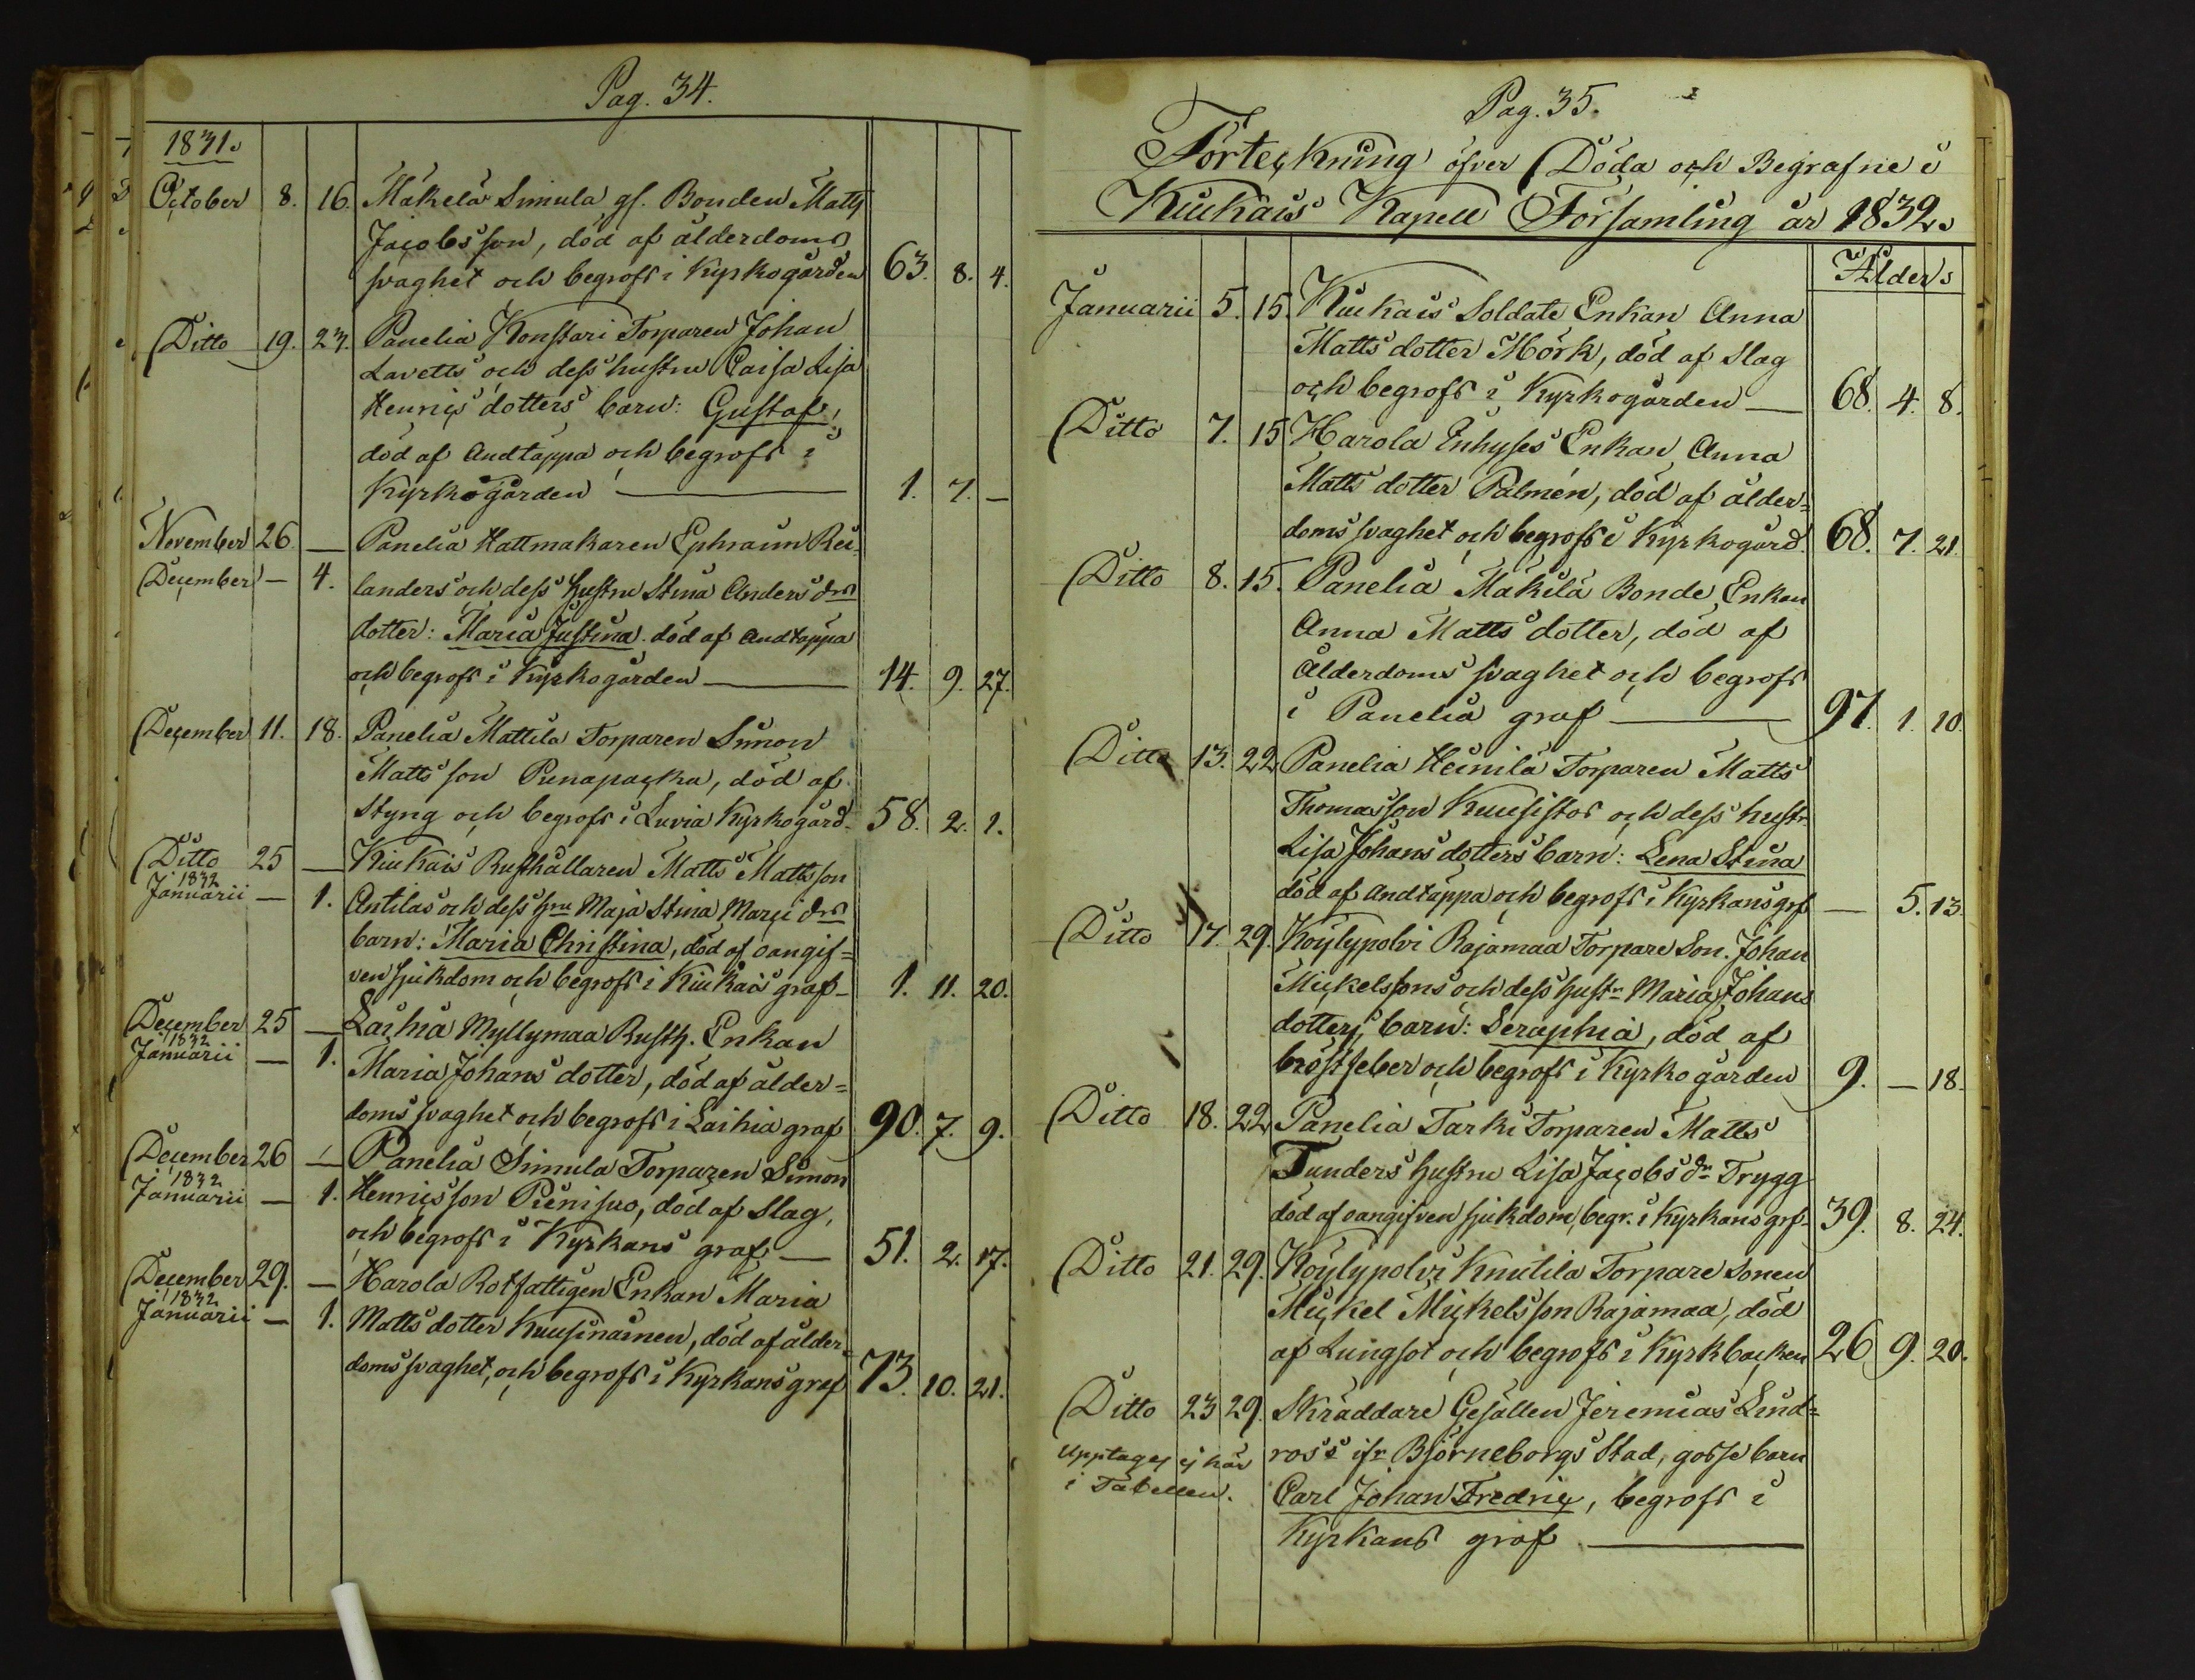 Pag. 34.
1831.
October 8. 16. Mäkelä Simula gl. Bonden Matts
Jacobsson, död af ålderdoms
svaghet och begrofs i Kyrkogården 63. 8. 4.
Ditto 19. 23. Panelia Konstari Torparen Johan
Lavetts och dess hustru Caisa Lisa
Henrics dotters barn: Gustaf,
död af Andtäppa och begrofs i
Kyrkogården — 1. 7. —
November 26 — Panelia Hattmakaren Ephraim Rei-
December — 4. landers och dess Hustru Stina Anders drs
dotter: Maria Justina. död af Andtäppa
och begrofs i Kyrkogården — 14. 9. 27.
December 11. 18. Panelia Mattila Torparen Simon
Matts son Punapacka, död af
Styng och begrofs i Luvia Kyrkogård. 58. 2. 1.
Ditto 25 — Kiukais Rusthållaren Matts Mattsson
1832
Januarii — 1. Antilas och dess Hru Maja Stina Marci drs
barn: Maria Christina, död af oangif=
ven sjukdom och begrofs i Kiukais graf — 1. 11. 20.
December 25 — Laihia Myllymaa Rusth. Enkan
1832
Januarii — 1. Maria Johans dotter, död af ålder=
doms svaghet och begrofs i Laihia graf 90. 7. 9.
December 26 — Panelia Simula Torparen Simon
1832
Januarii — 1. Henricsson Pienisuo, död af Slag,
och begrofs i Kyrkans graf — 51. 2. 17.
December 29. — Harola Rotfattigen Enkan Maria
1832
Januarii — 1. Matts dotter Kuusinainen, död af ålder=
doms svaghet, och begrofs i Kyrkans graf 73. 10. 21.
Pag. 35.
Förteckning öfver Döda och Begrafne i
Kiukais Kapell Församling år 1832.
Ålder:
Januarii 5. 15. Kiukais Soldate Enkan Anna
Matts dotter Mörk, död af Slag
och begrofs i Kyrkogården — 68. 4. 8.
Ditto 7. 15 Harola Inhyses Enkan Anna
Matts dotter Palmén, död af ålder=
doms svaghet och begrofs i Kyrkogård. 68. 7. 21.
Ditto 8. 15. Panelia Mäkilä Bonde Enkan
Anna Matts dotter, död af
Ålderdoms svaghet och begrofs
i Panelia graf — 97. 1. 10.
Ditto 13. 22 Panelia Heinilä Torparen Matts
Thomasson Kuusistos och dess hustr.
Lisa Johans dotters barn: Lena Stina
död af Andtäppa och begrofs i Kyrkans grf — 5. 13.
Ditto 17. 29. Köylypolvi Rajamaa Torpare Son. Johan
Mickelssons och dess Hustr Maria Johans
dotters barn: Seraphia, död af
bröstfeber och begrofs i Kyrkogården 9. — 18.
Ditto 18. 22 Panelia Tarki Torparen Matts
Tunders Hustru Lisa Jacobs dr Trygg
död af oangifven sjukdom, begr. i Kyrkans grf. 39. 8. 24.
Ditto 21. 29. Köylypolvi Knutila Torpare Sonen
Mickel Mickelsson Rajamaa, död
af Lungsot och begrofs i Kyrkbacken 26 9. 20.
Ditto 23 29. Skräddare Gesällen Jeremias Lind=
Upptages ej här ross ifr Björneborgs Stad, gosse barn
i Tabellen. Carl Johan Fredric, begrofs i
Kyrkans graf —